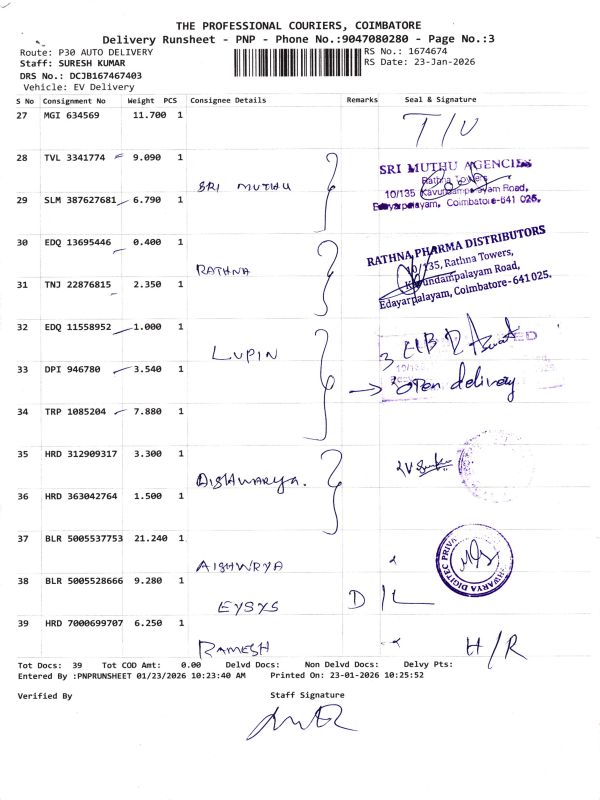 THE PROFESSIONAL COURIERS, COIMBATORE
Delivery Runsheet - PNP - Phone No.:9047080280 - Page No.:3
Route: P30 AUTO DELIVERY
RS No.: 1674674
Staff: SURESH KUMAR
RS Date: 23-Jan-2026
DRS No.: DCJB167467403
Vehicle: EV Delivery
S No Consignment No Weight PCS Consignee Details Remarks Seal & Signature
27 MGI 634569 11.700 1 T/U
28 TVL 3341774 9.090 1
SRI MUTHU
SRI MUTHU AGENCIES
Rathna Towers
10/135 Kavundampalayam Road,
Edayarpalayam, Coimbatore-641 025.
29 SLM 387627681 6.790 1
30 EDQ 13695446 0.400 1
RATHNA
RATHNA PHARMA DISTRIBUTORS
10/135, Rathna Towers,
Kavundampalayam Road,
Edayarpalayam, Coimbatore-641 025.
31 TNJ 22876815 2.350 1
32 EDQ 11558952 1.000 1
LUPIN
33 DPI 946780 3.540 1
open delivery
34 TRP 1085204 7.880 1
35 HRD 312909317 3.300 1
AISHWARYA.
36 HRD 363042764 1.500 1
37 BLR 5005537753 21.240 1
AISHWRYA
38 BLR 5005528666 9.280 1
EYSYS D/L
39 HRD 7000699707 6.250 1
RAMESH H/R
Tot Docs: 39 Tot COD Amt: 0.00 Delvd Docs: Non Delvd Docs: Delvy Pts:
Entered By :PNPRUNSHEET 01/23/2026 10:23:40 AM Printed On: 23-01-2026 10:25:52
Verified By Staff Signature